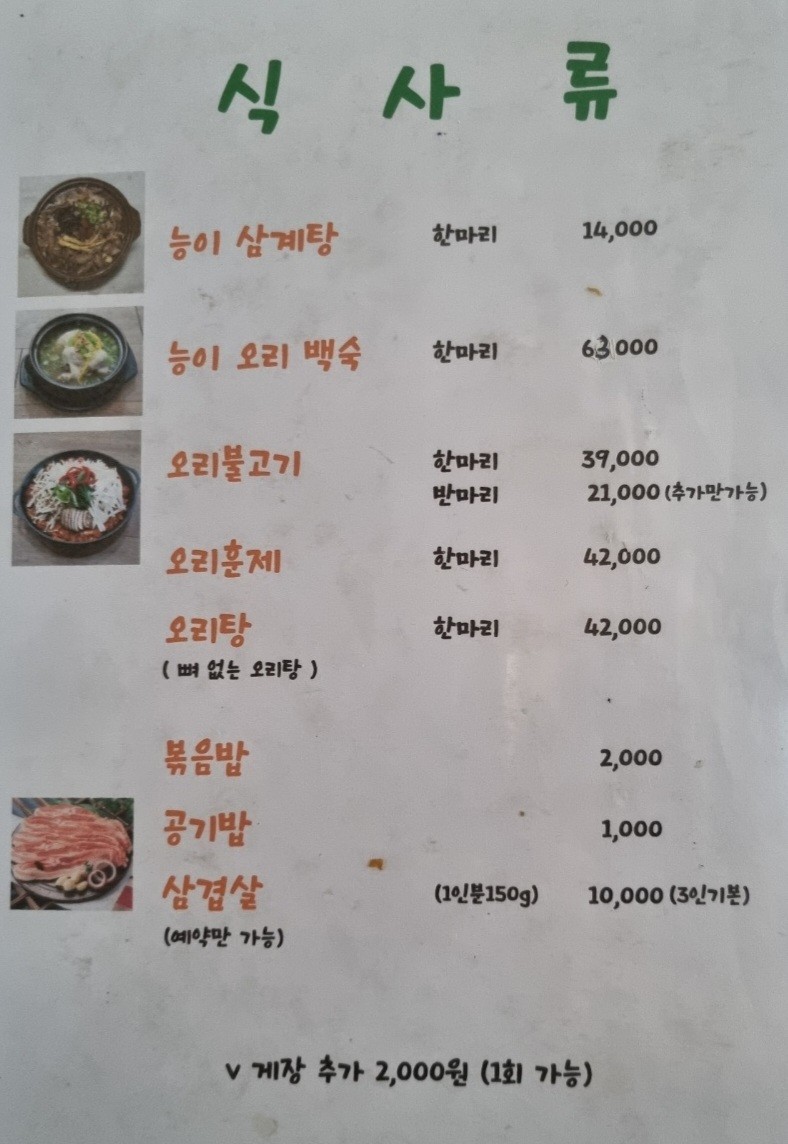 식 사 류
능이 삼계탕 한마리 14,000
능이 오리 백숙 한마리 63,000
오리불고기 한마리 39,000
반마리 21,000 (추가만가능)
오리훈제 한마리 42,000
오리탕 한마리 42,000
( 뼈 없는 오리탕 )
볶음밥 2,000
공기밥 1,000
삼겹살 (1인분150g) 10,000 (3인기본)
(예약만 가능)
v 게장 추가 2,000원 (1회 가능)